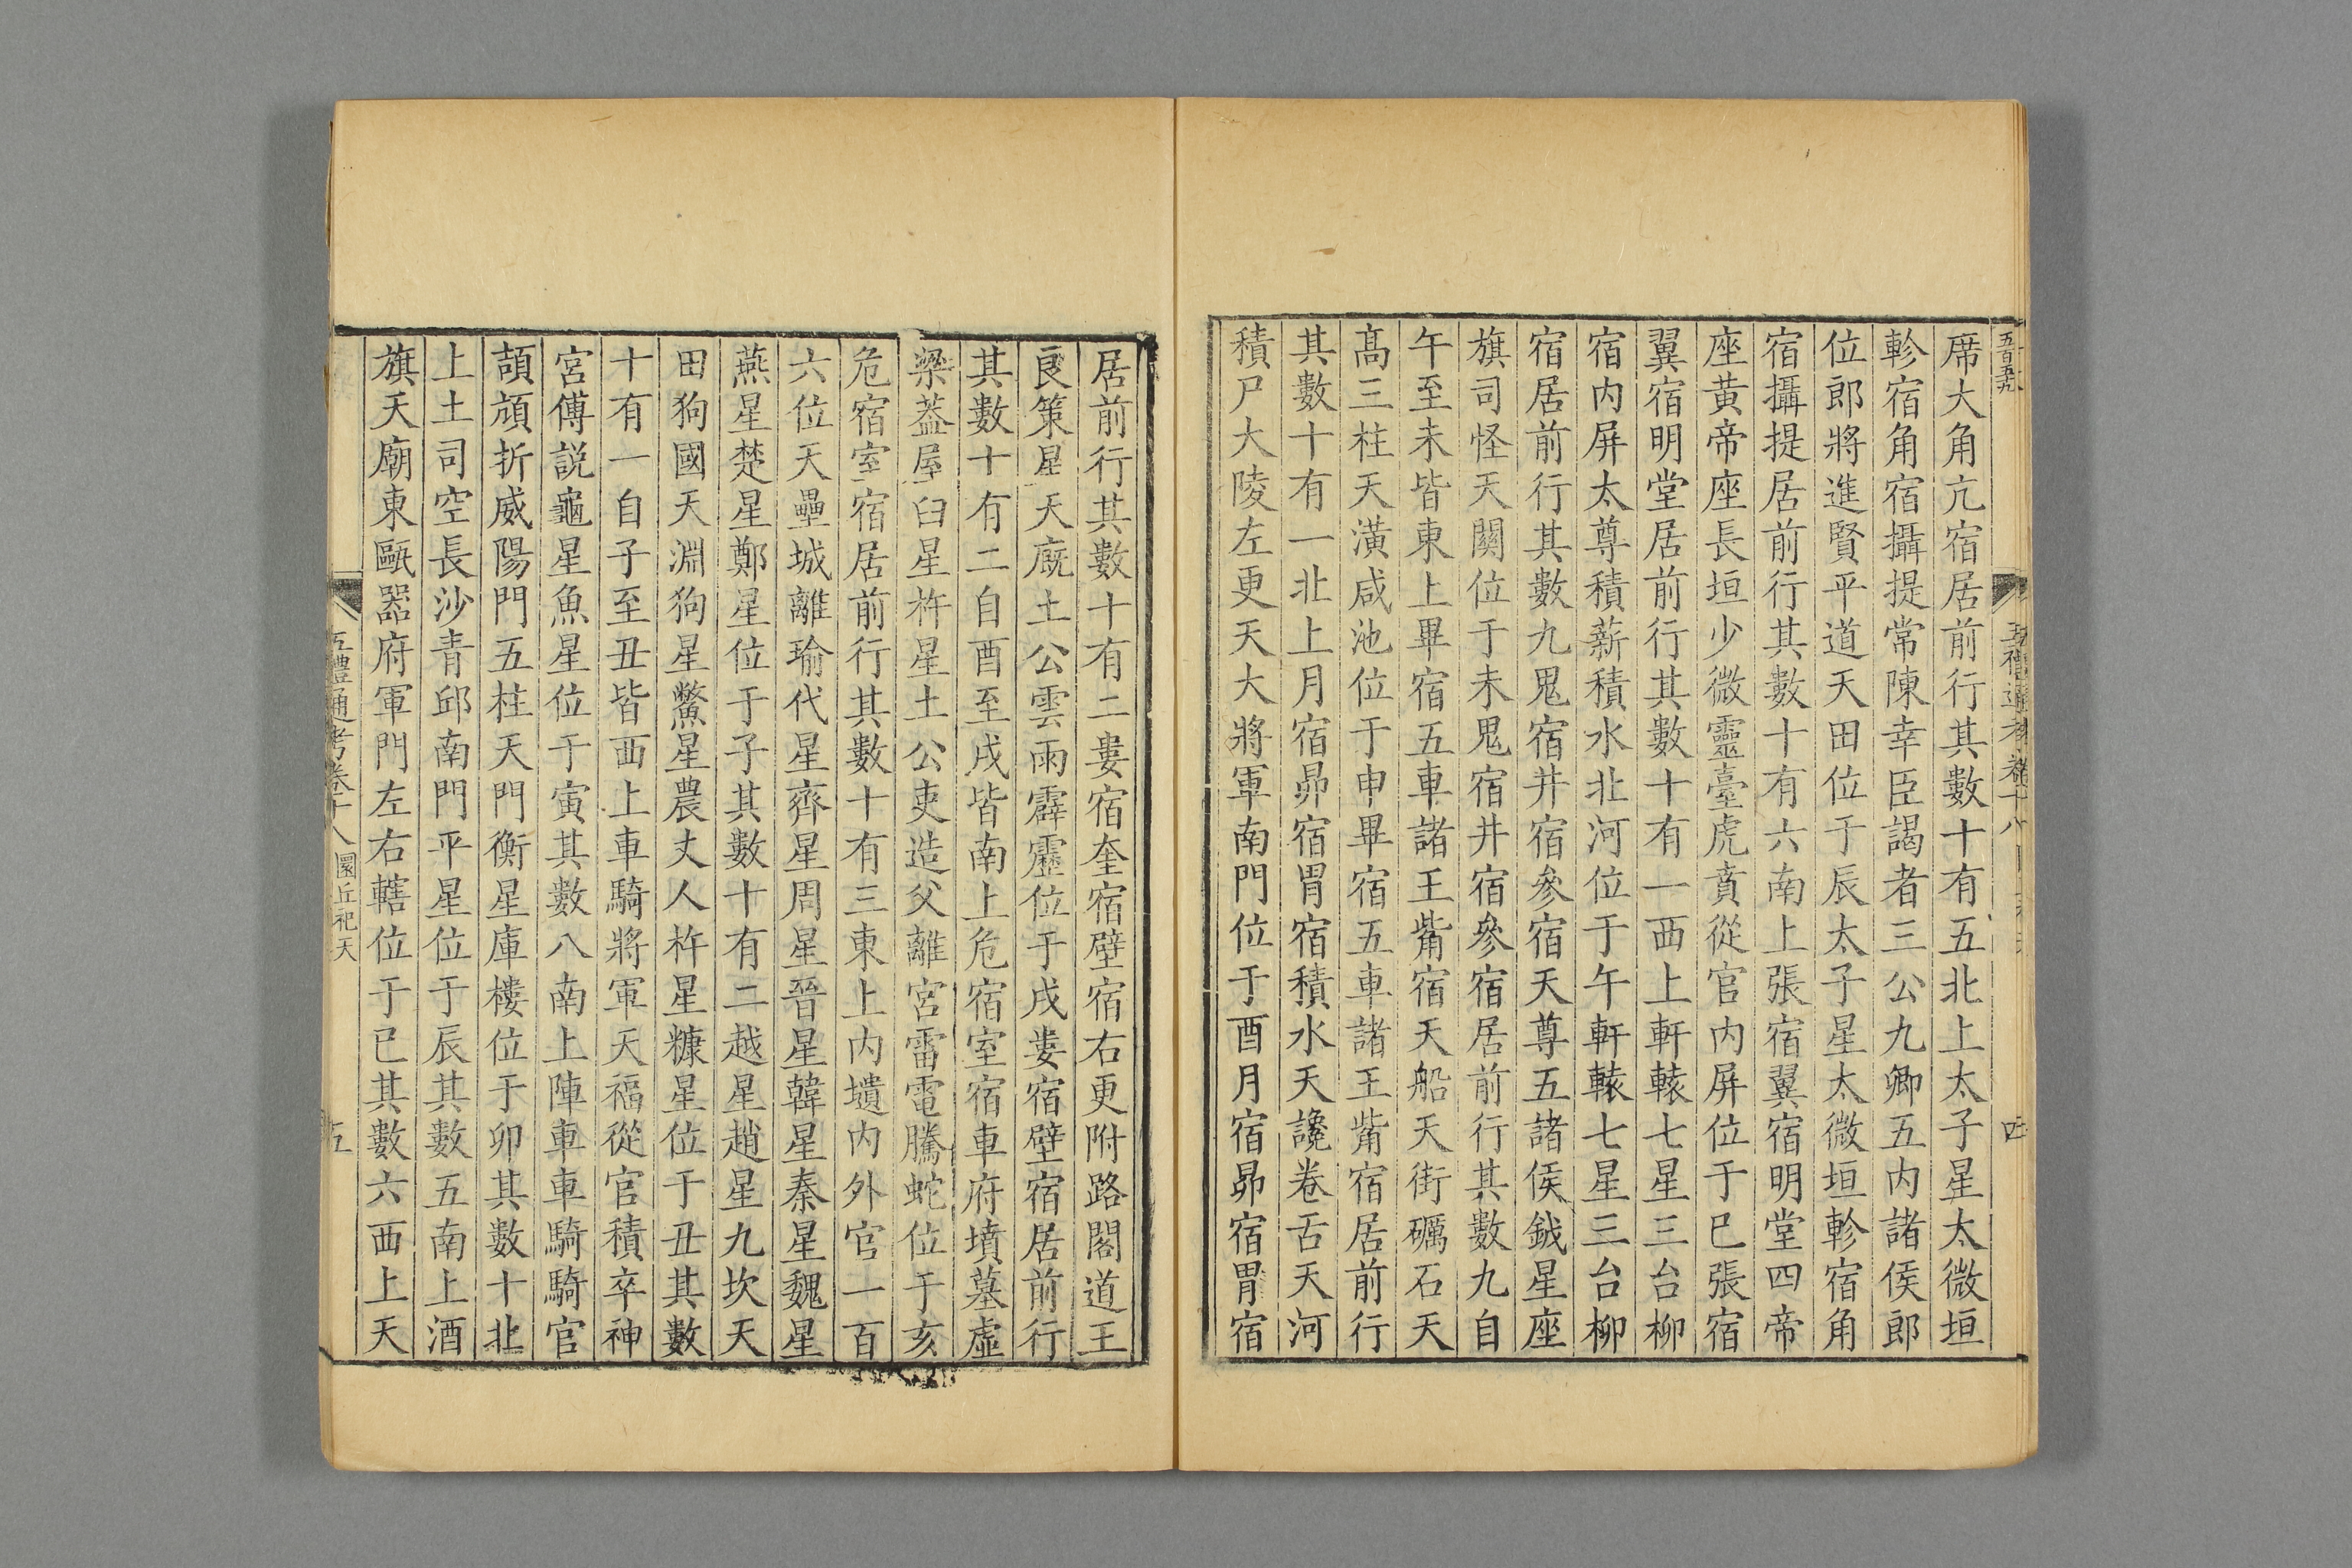 席大角亢宿居前行其數十有五北上太子星太微垣
軫宿角宿攝提常陳幸臣謁者三公九卿五内諸侯郎
位郎將進賢平道天田位于辰太子星太微垣軫宿角
宿攝提居前行其數十有六南上張宿翼宿明堂四帝
座黄帝座長垣少微靈臺虎賁從官内屏位于巳張宿
翼宿明堂居前行其數十有一西上軒轅七星三台柳
宿内屏太尊積薪積水北河位于午軒轅七星三台柳
宿居前行其數九鬼宿井宿參宿天尊五諸侯鉞星座
旗司怪天關位于未鬼宿井宿參宿居前行其數九自
午至未皆東上畢宿五車諸王觜宿天船天街礪石天
高三柱天潢咸池位于申畢宿五車諸王觜宿居前行
其數十有一北上月宿昴宿胃宿積水天讒卷舌天河
積尸大陵左更天大將軍南門位于酉月宿昴宿胃宿
居前行其數十有二婁宿奎宿壁宿右更附路閣道王
良策星天廐土公雲雨霹靂位于戌婁宿壁宿居前行
其數十有二自酉至戌皆南上危宿室宿車府墳墓虛
梁蓋屋臼星杵星土公吏造父離宮雷電騰蛇位于亥
危宿室宿居前行其數十有三東上内壝内外官一百
六位天壘城離瑜代星齊星周星晉星韓星秦星魏星
燕星楚星鄭星位于子其數十有二越星趙星九坎天
田狗國天淵狗星鱉星農丈人杵星糠星位于丑其數
十有一自子至丑皆西上車騎將軍天福從官積卒神
宮傅説龜星魚星位于寅其數八南上陣車車騎騎官
頡頏折威陽門五柱天門衡星庫樓位于卯其數十北
上土司空長沙青邱南門平星位于辰其數五南上酒
旗天廟東甌器府軍門左右轄位于巳其數六西上天
五禮通考卷十八 圜丘祀天 五